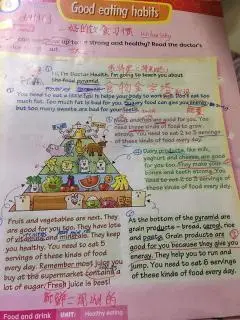 Good eating habits
好的饮食习惯
up to be strong and healthy? Read the doctor's
Hi, I'm Doctor Health. I'm going to teach you about
the food pyramid.
食物金字塔
You need to eat a little fat to help your body to work well. Don't eat too
much fat. Too much fat is bad for you. Sugary food can give you energy,
but too many sweets are bad for your teeth.
Meat and fish are good for you. You
need these kinds of food to grow
strong. You need to eat 2 to 3 servings
of these kinds of food every day.
Dairy products, like milk,
yoghurt and cheese, are good
for you too. They make your
bones and teeth strong. You
need to eat 2 to 3 servings of
these kinds of food every day.
Fruits and vegetables are next. They
are good for you too. They have lots
of vitamins and minerals. They keep
you healthy. You need to eat 5
servings of these kinds of food
every day. Remember most juice you
buy at the supermarket contains a
lot of sugar. Fresh juice is best!
At the bottom of the pyramid are
grain products – bread, cereal, rice
and pasta. Grain products are
good for you because they give you
energy. They help you to run and
jump. You need to eat 6 servings
of these kinds of food every day.
Food and drink UNIT: Healthy eating